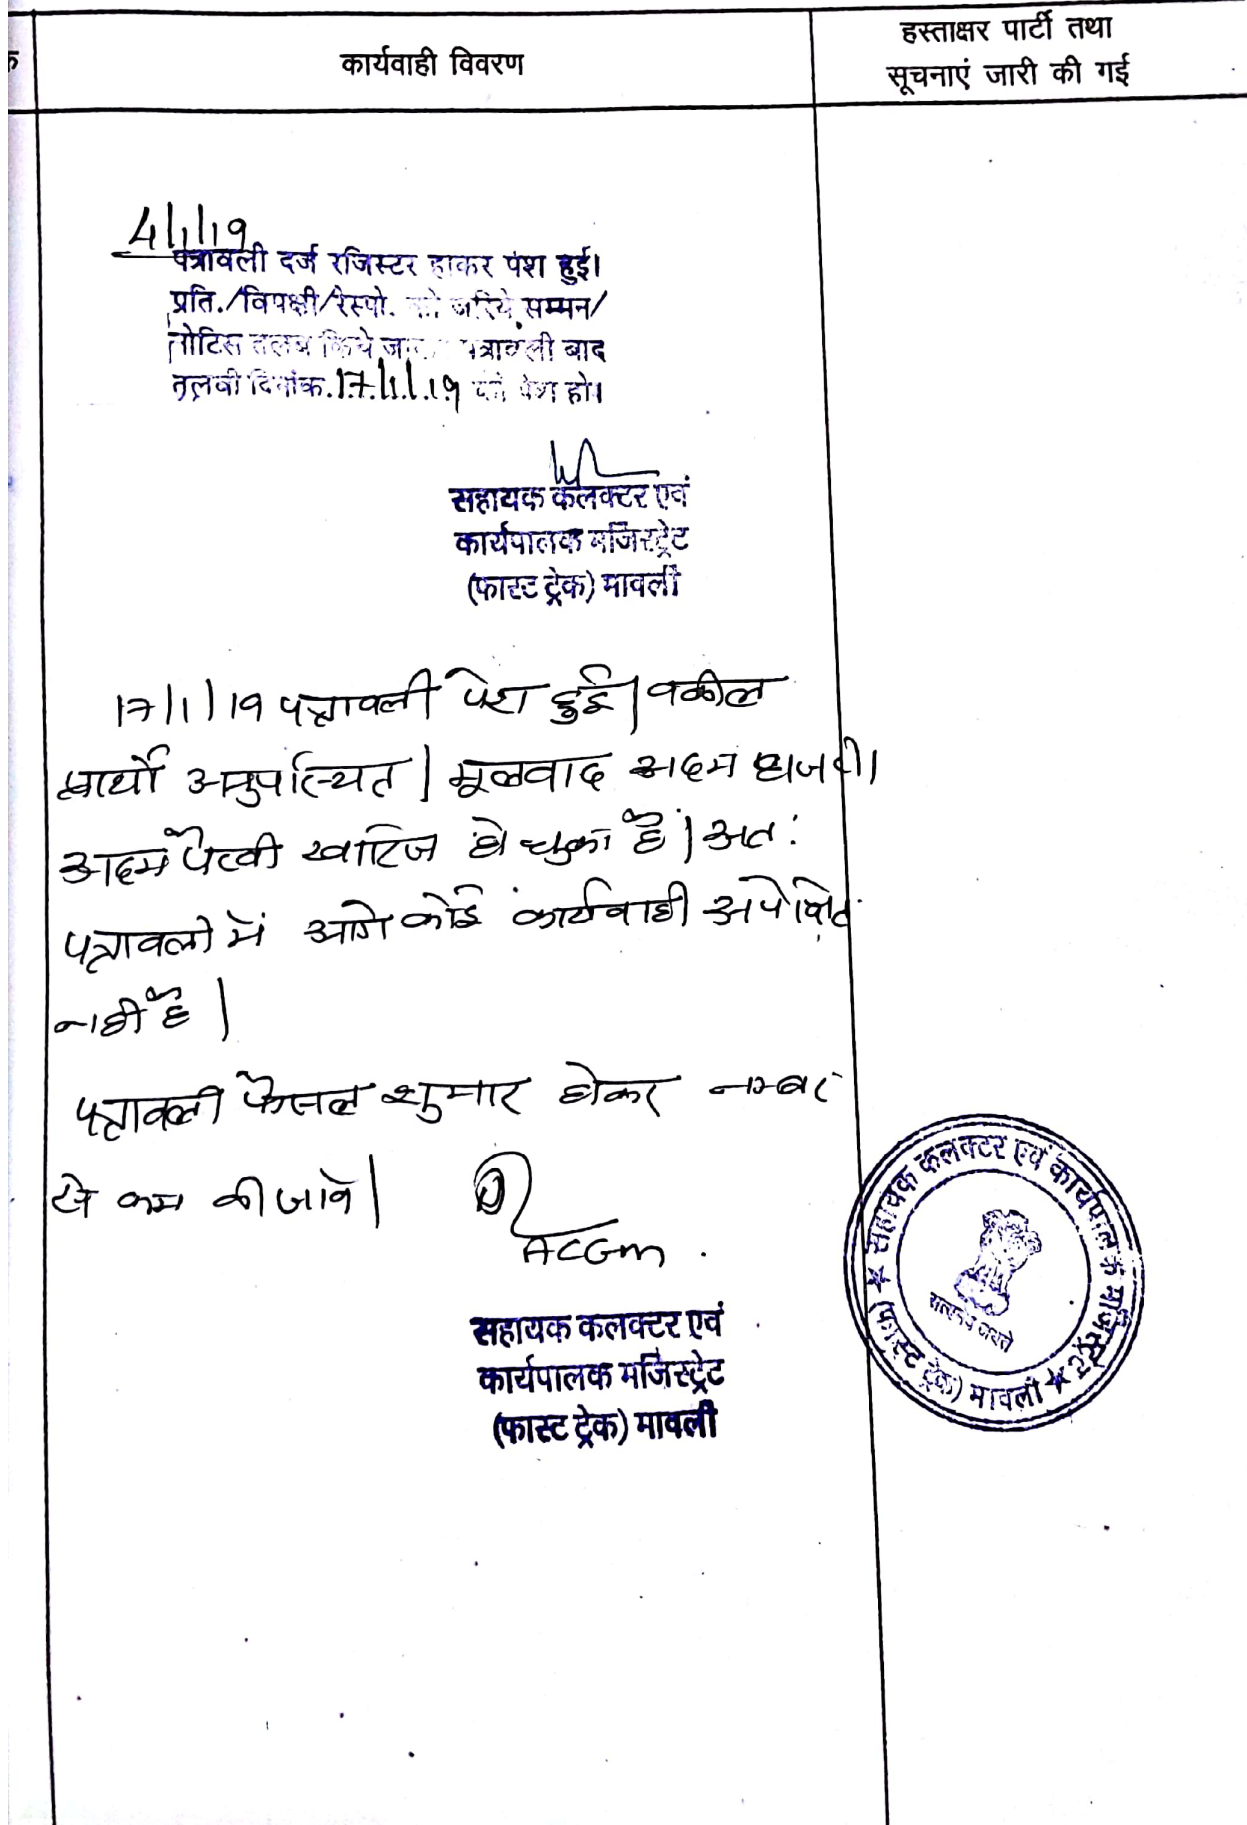 कार्यवाही विवरण
हस्ताक्षर पार्टी तथा
सूचनाएं जारी की गई
4/1/19
पत्रावली दर्ज रजिस्टर होकर पेश हुई।
प्रति./विपक्षी/रेस्पो. को जरिये सम्मन/
नोटिस तलब किये पत्रावली बाद
तलबी दिनांक.17/1/19 को पेश हो।
सहायक कलक्टर एवं
कार्यपालक मजिस्ट्रेट
(फास्ट ट्रेक) मावली
17/1/19 पत्रावली पेश हुई। वकील
प्रार्थी अनुपस्थित। मूलवाद अदम हाजरी
अदम पैरवी खारिज हो चुका है। अतः
पत्रावली में आगे कोई कार्यवाही अपेक्षित
नहीं है।
पत्रावली फैसल शुमार होकर नम्बर
से कम की जावे।
ACGm
सहायक कलक्टर एवं
कार्यपालक मजिस्ट्रेट
(फास्ट ट्रेक) मावली
सहायक कलक्टर एवं कार्यपालक मजिस्ट्रेट
(फास्ट ट्रेक) मावली
सत्यमेव जयते